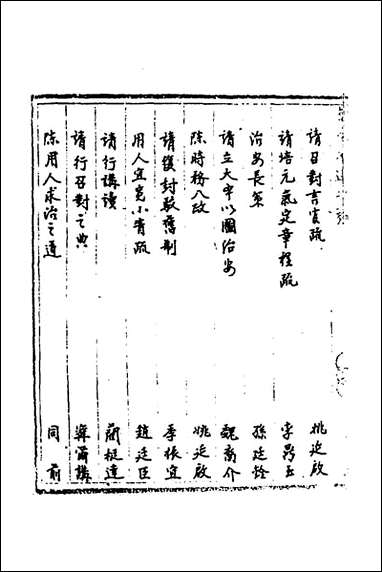 請召對言官疏 姚延啟
請培元氣定章程疏 李昌玉
治安長策 孫廷銓
請立大宰以圖治安 魏裔介
陳時務八政 姚延啟
請復封駁舊制 季振宜
用人宜寬小眚疏 趙廷臣
請行講讀 藺挺達
請行召對之典 梁爾譔
陳用人求治之道 同前